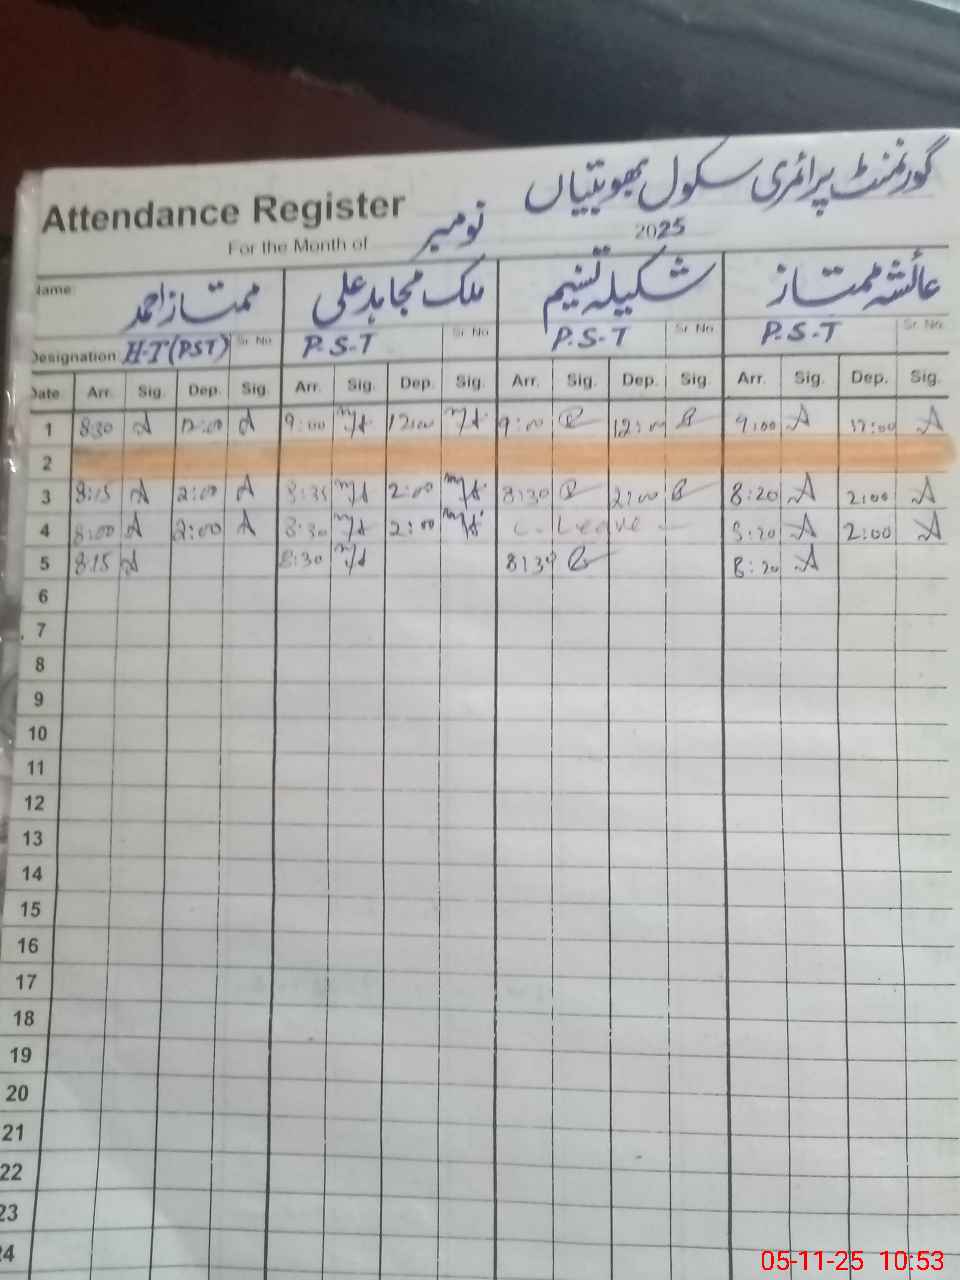 گورنمنٹ پرائمری سکول بھوبتیاں
Attendance Register
For the Month of نومبر 2025
Name: ممتاز احمد ملک مجاہد علی شکیلہ تسنیم عائشہ ممتاز
Designation H-T(PST) Sr. No. P.S-T Sr. No. P.S-T Sr. No. P.S-T Sr. No.
Date Arr. Sig. Dep. Sig. Arr. Sig. Dep. Sig. Arr. Sig. Dep. Sig. Arr. Sig. Dep. Sig.
1 8:30 12:00 9:00 12:00 9:00 12:00 9:00 12:00
2
3 8:15 2:00 8:35 2:00 8:30 2:00 8:20 2:00
4 8:00 2:00 8:30 2:00 C. Leave 8:20 2:00
5 8:15 8:30 8:30 8:20
6
7
8
9
10
11
12
13
14
15
16
17
18
19
20
21
22
23
24
05-11-25 10:53